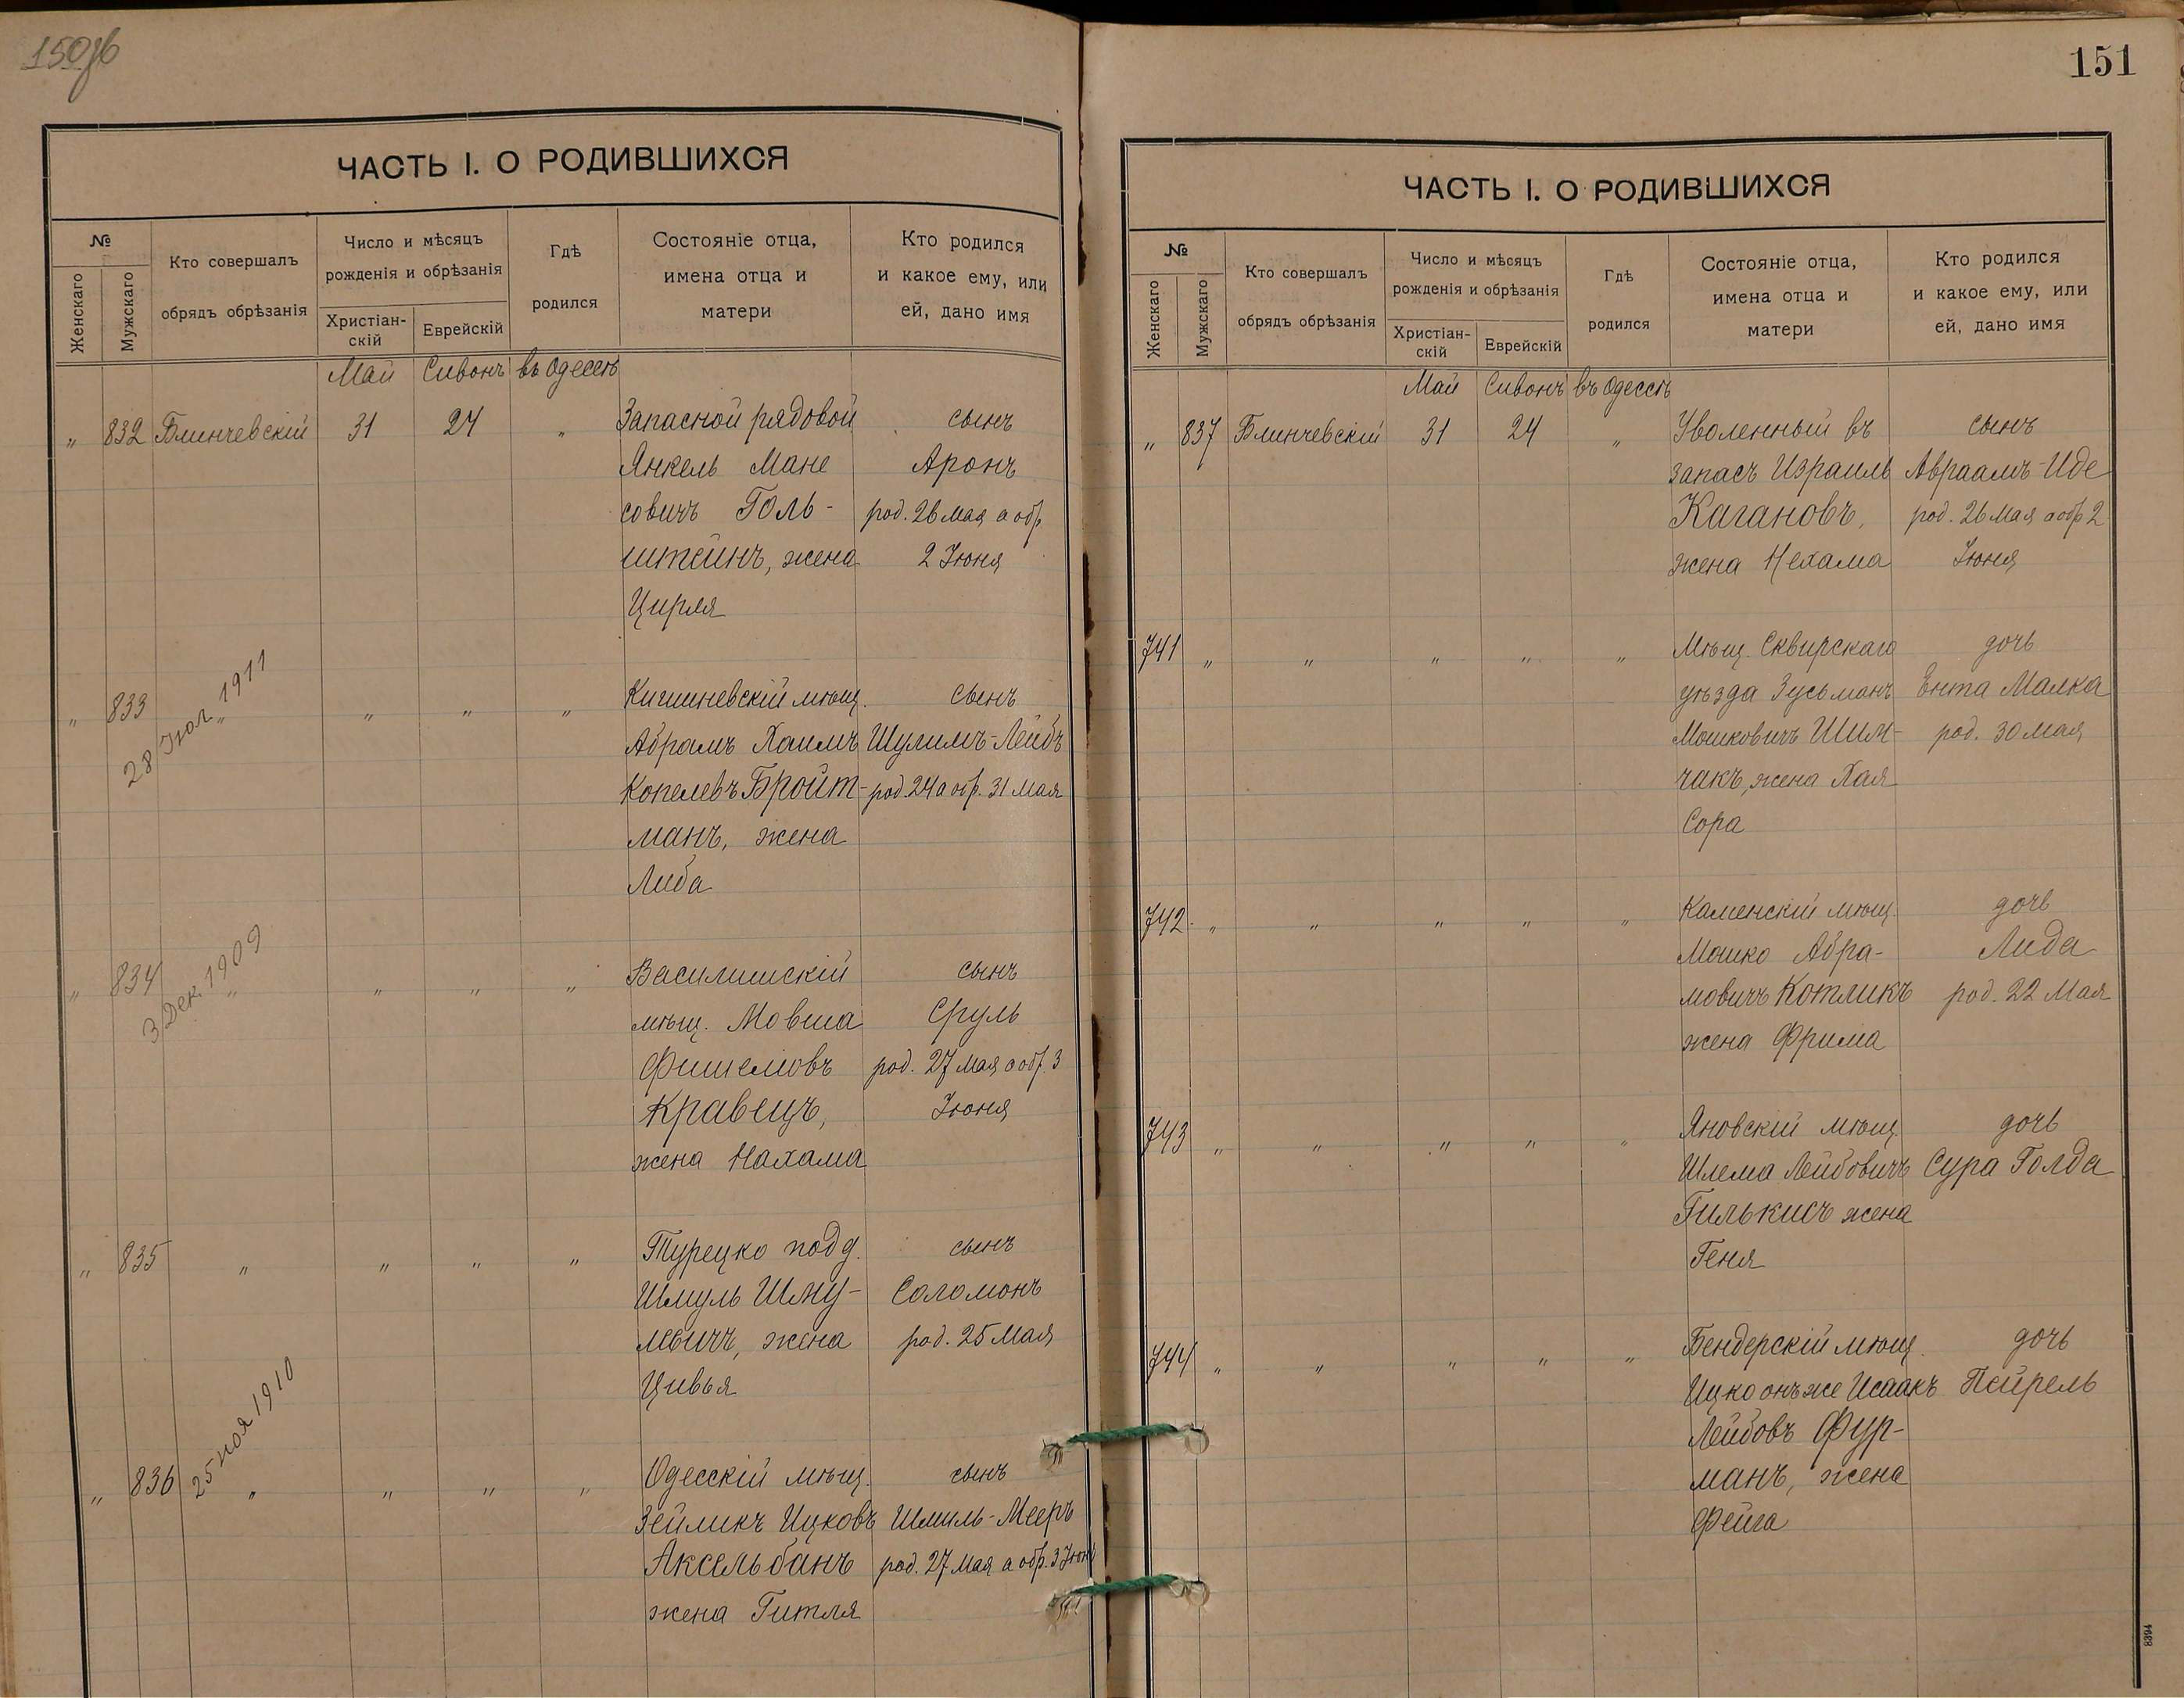 150об
ЧАСТЬ I. О РОДИВШИХСЯ
№
Женскаго
Мужскаго
Кто совершалъ
обрядъ обрѣзанія
Число и мѣсяцъ
рожденія и обрѣзанія
Христіан-
скій
Еврейскій
Гдѣ
родился
Состояніе отца,
имена отца и
матери
Кто родился
и какое ему, или
ей, дано имя
Май Сивонъ въ Одессѣ
" 832 Блинчевскій 31 24 " Запасной рядовой сынъ
Янкель Мане Аронъ
совичъ Голь- род. 26 Мая а обр.
штейнъ, жена 2 Іюня
Цирля
" 833 " " " " Кишиневскій мѣщ. сынъ
28 Іюл 1911
Абрамъ Хаимъ Шулимъ-Лейбъ
Копелевъ Бройт- род. 24 а обр. 31 Мая
манъ, жена
Либа
" 834 " " " " Василишскій сынъ
3 Дек. 1909
мѣщ. Мовша Сруль
Фишелювъ род. 27 Мая а обр. 3
Кравецъ, Іюня
жена Нахама
" 835 " " " " Турецко подд. сынъ
Шмуль Шму- Соломонъ
левичъ, жена род. 25 Мая
Цивья
" 836 " " " " Одесскій мѣщ. сынъ
25 ноя 1910
Зейликъ Ицковъ Шмиль-Мееръ
Аксельбанъ род. 27 Мая а обр. 3 Іюня
жена Гитля
151
ЧАСТЬ I. О РОДИВШИХСЯ
№
Женскаго
Мужскаго
Кто совершалъ
обрядъ обрѣзанія
Число и мѣсяцъ
рожденія и обрѣзанія
Христіан-
скій
Еврейскій
Гдѣ
родился
Состояніе отца,
имена отца и
матери
Кто родился
и какое ему, или
ей, дано имя
Май Сивонъ въ Одессѣ
" 837 Блинчевскій 31 24 " Уволенный въ сынъ
запасъ Израиль Авраамъ-Иде
Кагановъ, род. 26 Мая а обр 2
жена Нехама Іюня
741 " " " " " Мѣщ. Сквирскаго дочь
уѣзда Зусьманъ Ента Малка
Мошковичъ Шим- род. 30 Мая
чакъ, жена Хая
Сора
742 " " " " " Каменскій мѣщ. дочь
Мошко Абра- Лида
мовичъ Котликъ род. 22 Мая
жена Фрима
743 " " " " " Яновскій мѣщ. дочь
Шлема Лейбовичъ Сура Голда
Гилькисъ жена
Геня
744 " " " " " Бендерскій мѣщ. дочь
Ицко онъже Исаакъ Пейрель
Лейбовъ Фур-
манъ, жена
Фейга
8394